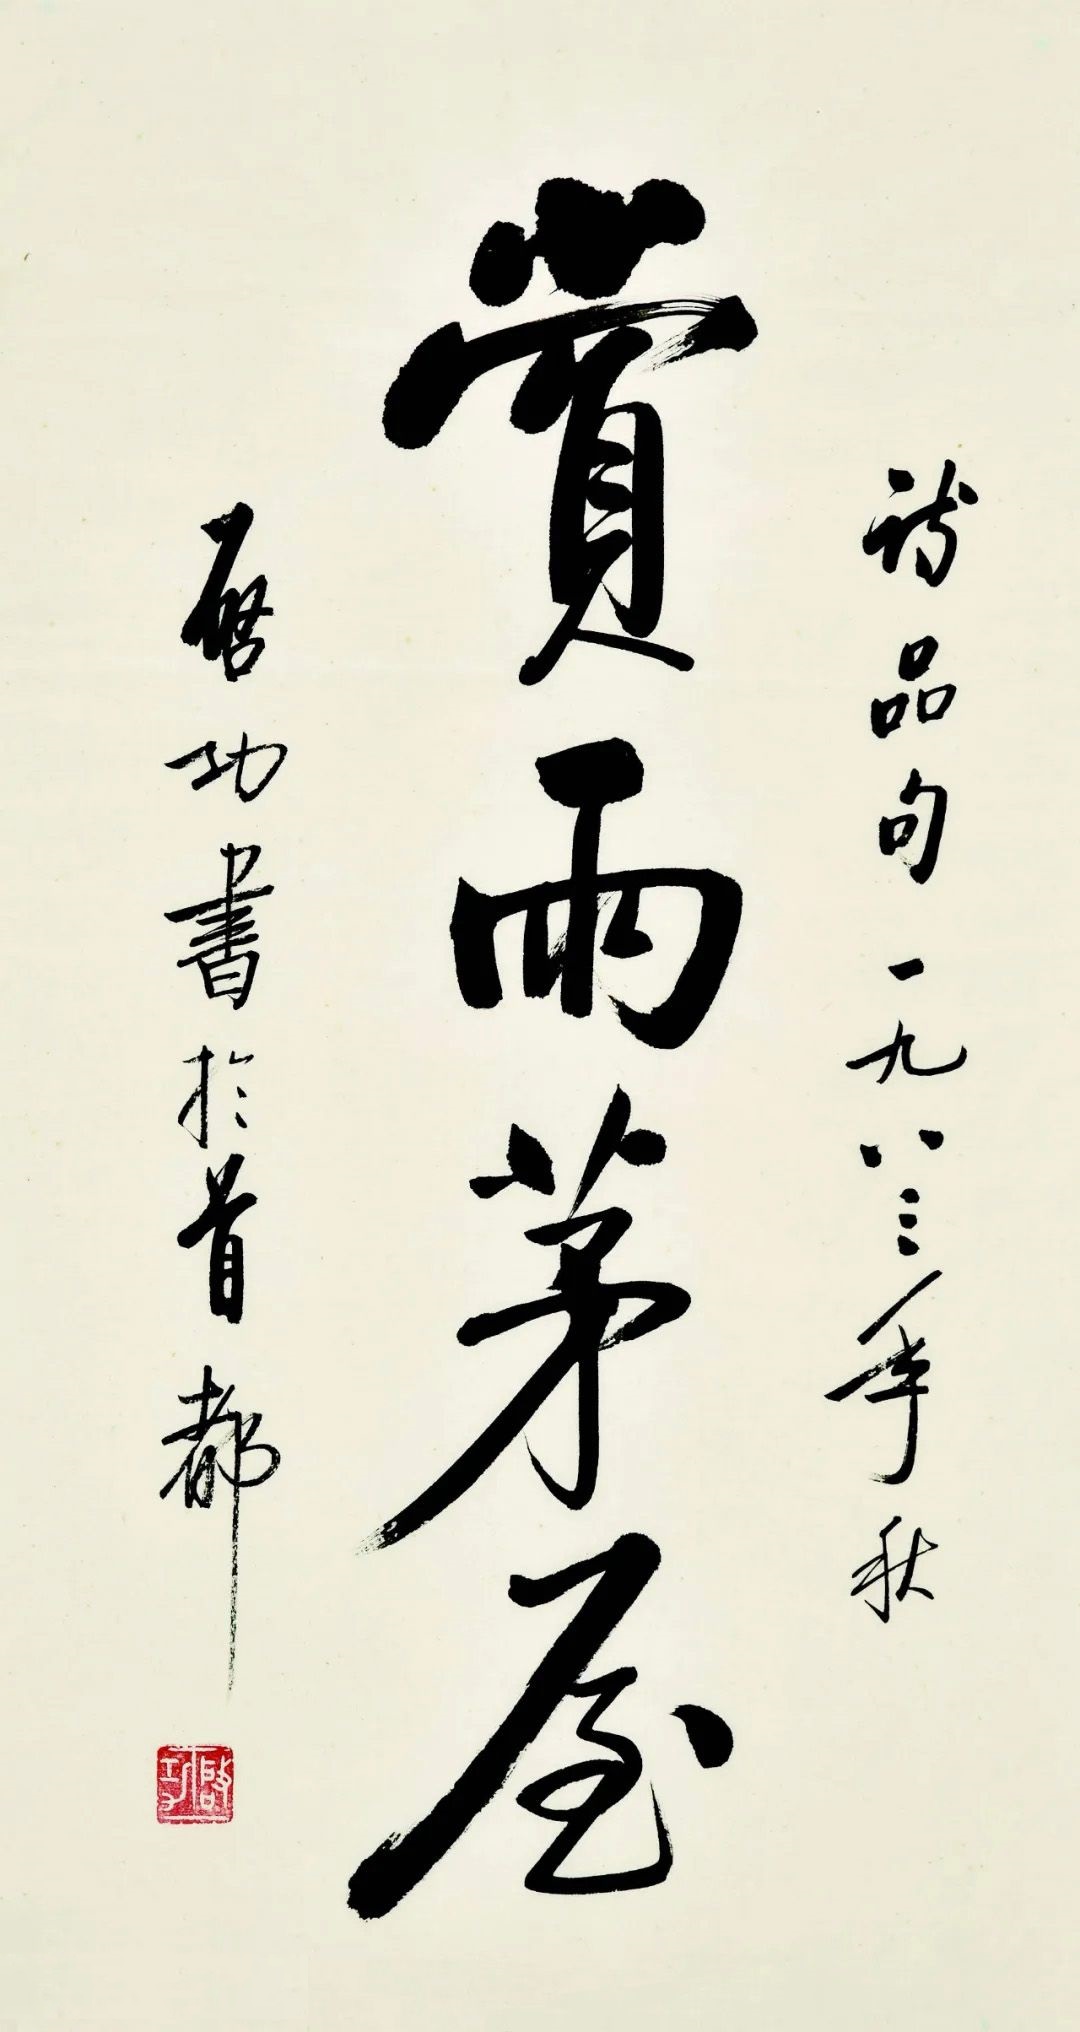 詩品句一九八三年秋
賞雨茅屋
啓功書於首都
啓功